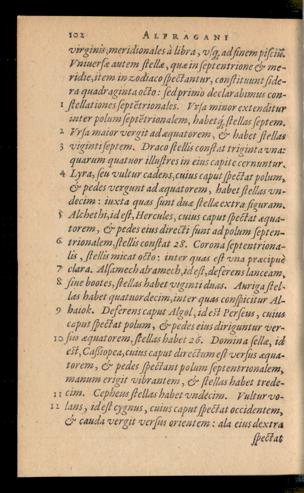 102 ALFRAGANI
virginis; meridionales à libra, usq; ad finem pisciũ.
Vniuersæ autem stellæ, quæ in septentrione & me-
ridie, item in zodiaco spectantur, constituunt side-
ra quadraginta octo: sed primò declarabimus con-
1 stellationes septẽtrionales. Vrsa minor extenditur
inter polum septẽtrionalem, habetq́; stellas septem.
2 Vrsa maior vergit ad æquatorem, & habet stellas
3 viginti septem. Draco stellis constat triginta vna:
quarum quatuor illustres in eius capite cernuntur.
4 Lyra, seu vultur cadens, cuius caput spectat polum,
& pedes vergunt ad æquatorem, habet stellas vn-
decim: iuxta quas sunt duæ stellæ extra figuram.
5 Alchethi, id est, Hercules, cuius caput spectat æqua-
torem, & pedes eius directi sunt ad polum septen-
6 trionalem, stellis constat 28. Corona septentriona-
lis, stellis micat octo: inter quas est vna præcipuè
7 clara. Alsamech alramech, id est, deferens lanceam,
8 siue bootes, stellas habet viginti duas. Auriga stel-
las habet quatuordecim, inter quas conspicitur Al-
9 haiok. Deferens caput Algol, id est Perseus, cuius
caput spectat polum, & pedes eius diriguntur ver-
10 sus æquatorem, stellas habet 26. Domina sellæ, id
est, Cassiopea, cuius caput directum est versus æqua-
torem, & pedes spectant polum septentrionalem,
manum erigit vibrantem, & stellas habet trede-
11 cim. Cepheus stellas habet vndecim. Vultur vo-
12 lans, id est cygnus, cuius caput spectat occidentem,
& cauda vergit versus orientem: ala eius dextra
spectat